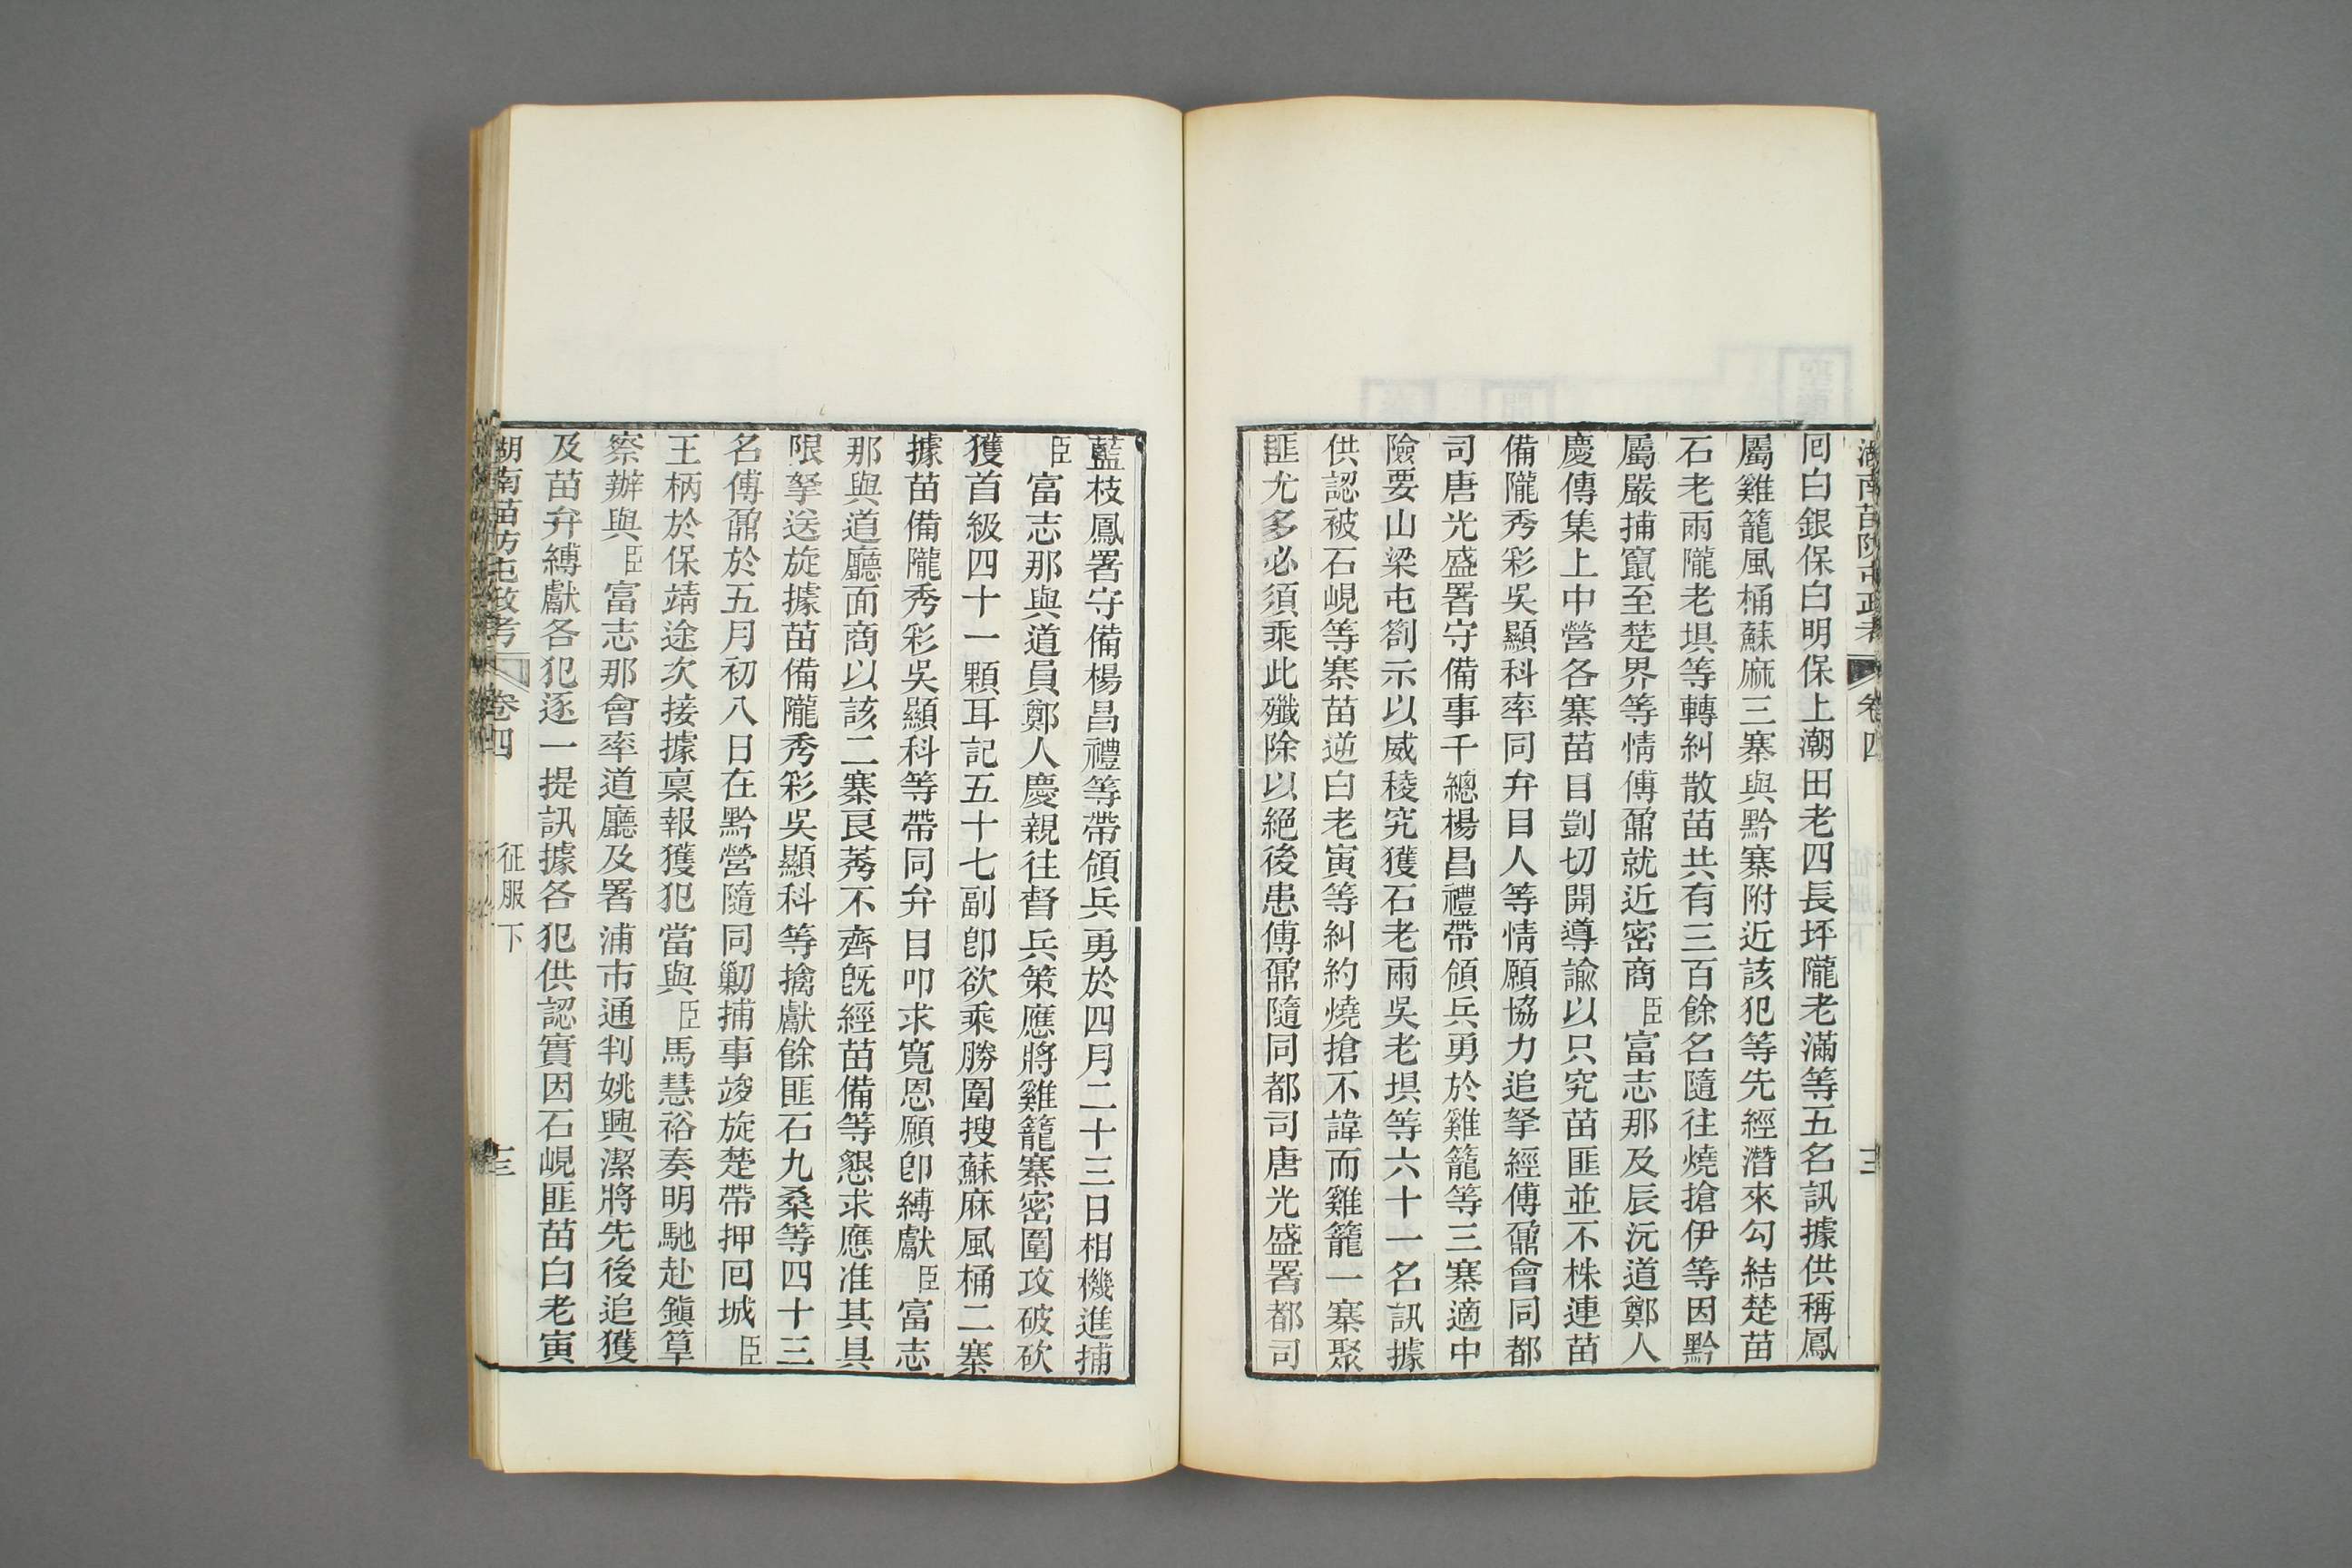 湖南苗防屯政考 卷四 十二
囘白銀保白明保上潮田老四長坪隴老滿等五名訊據供稱鳳
屬雞籠風桶蘇麻三寨與黔寨附近該犯等先經潛來勾結楚苗
石老雨隴老埧等轉糾散苗共有三百餘名隨往燒搶伊等因黔
屬嚴捕竄至楚界等情傅鼐就近密商臣富志那及辰沅道鄭人
慶傳集上中營各寨苗目剴切開導諭以只究苗匪並不株連苗
備隴秀彩吳顯科率同弁目人等情願協力追拏經傅鼐會同都
司唐光盛署守備事千總楊昌禮帶領兵勇於雞籠等三寨適中
險要山梁屯劄示以威稜究獲石老雨吳老埧等六十一名訊據
供認被石峴等寨苗逆白老寅等糾約燒搶不諱而雞籠一寨聚
匪尤多必須乘此殲除以絕後患傅鼐隨同都司唐光盛署都司
藍枝鳳署守備楊昌禮等帶領兵勇於四月二十三日相機進捕
臣富志那與道員鄭人慶親往督兵策應將雞籠寨密圍攻破砍
獲首級四十一顆耳記五十七副卽欲乘勝圍搜蘇麻風桶二寨
據苗備隴秀彩吳顯科等帶同弁目叩求寬恩願卽縛獻臣富志
那與道廳面商以該二寨良莠不齊旣經苗備等懇求應准其具
限拏送旋據苗備隴秀彩吳顯科等擒獻餘匪石九桑等四十三
名傅鼐於五月初八日在黔營隨同勦捕事竣旋楚帶押囘城臣
王柄於保靖途次接據稟報獲犯當與臣馬慧裕奏明馳赴鎭筸
察辦與臣富志那會率道廳及署浦市通判姚興潔將先後追獲
及苗弁縛獻各犯逐一提訊據各犯供認實因石峴匪苗白老寅
湖南苗防屯政考 卷四 征服下 十三